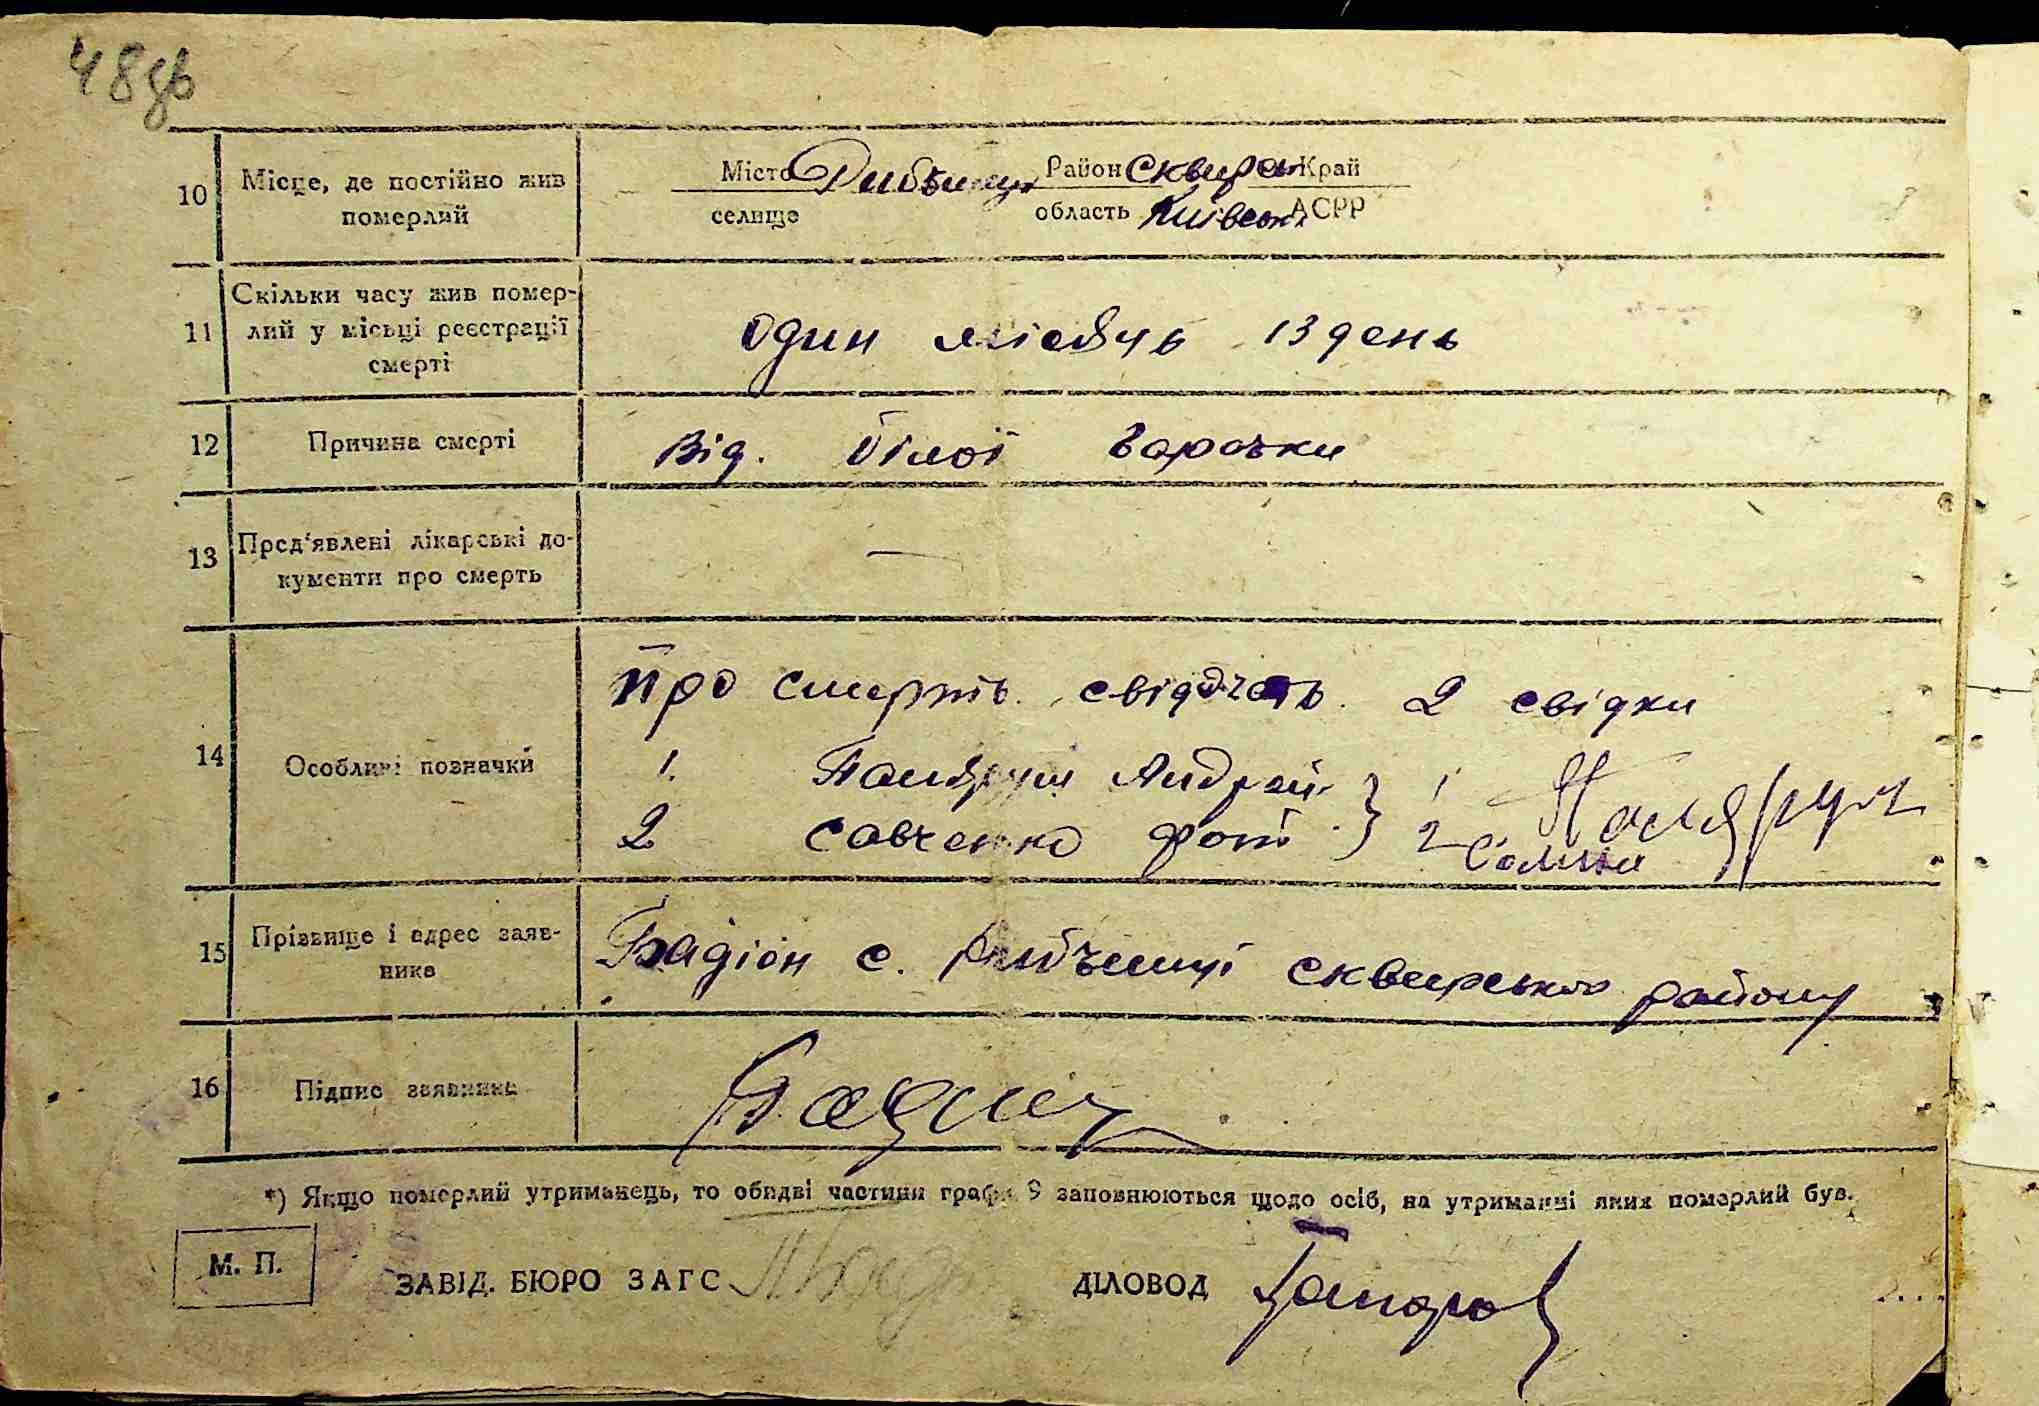 48зв
10 Місце, де постійно жив
помєрлий
Місто Район Сквирсь Край
селище область Київськ АСРР
11 Скільки часу жив помер-
лий у місьці реєстрації
смерті
один місяць 13 день
12 Причина смерті
Від. білої гарачки
13 Пред'явлені лікарські до-
кументи про смерть
—
14 Особливі позначки
Про смерть свідчать 2 свідки
1. Андрей } 1
2 Савченко } 2
15 Прізвище і адрес заяв-
ника
с. Рибчинці Сквирського району
16 Підпис заявника
*) Якщо померлий утриманець, то обидві частини графи 9 заповнюються щодо осіб, на утриманні яких померлий був.
М. П.
ЗАВІД. БЮРО ЗАГС ДІЛОВОД